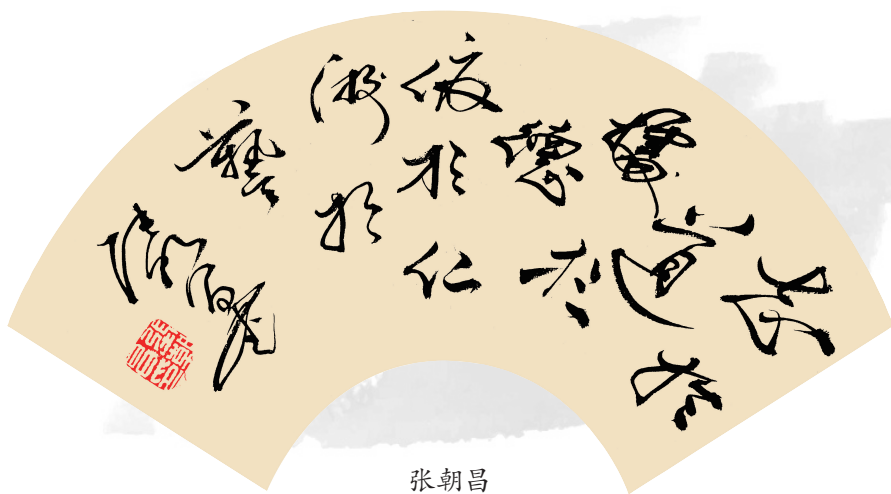 志於
道
據於
德
依於仁
游於
藝
張朝昌
张朝昌